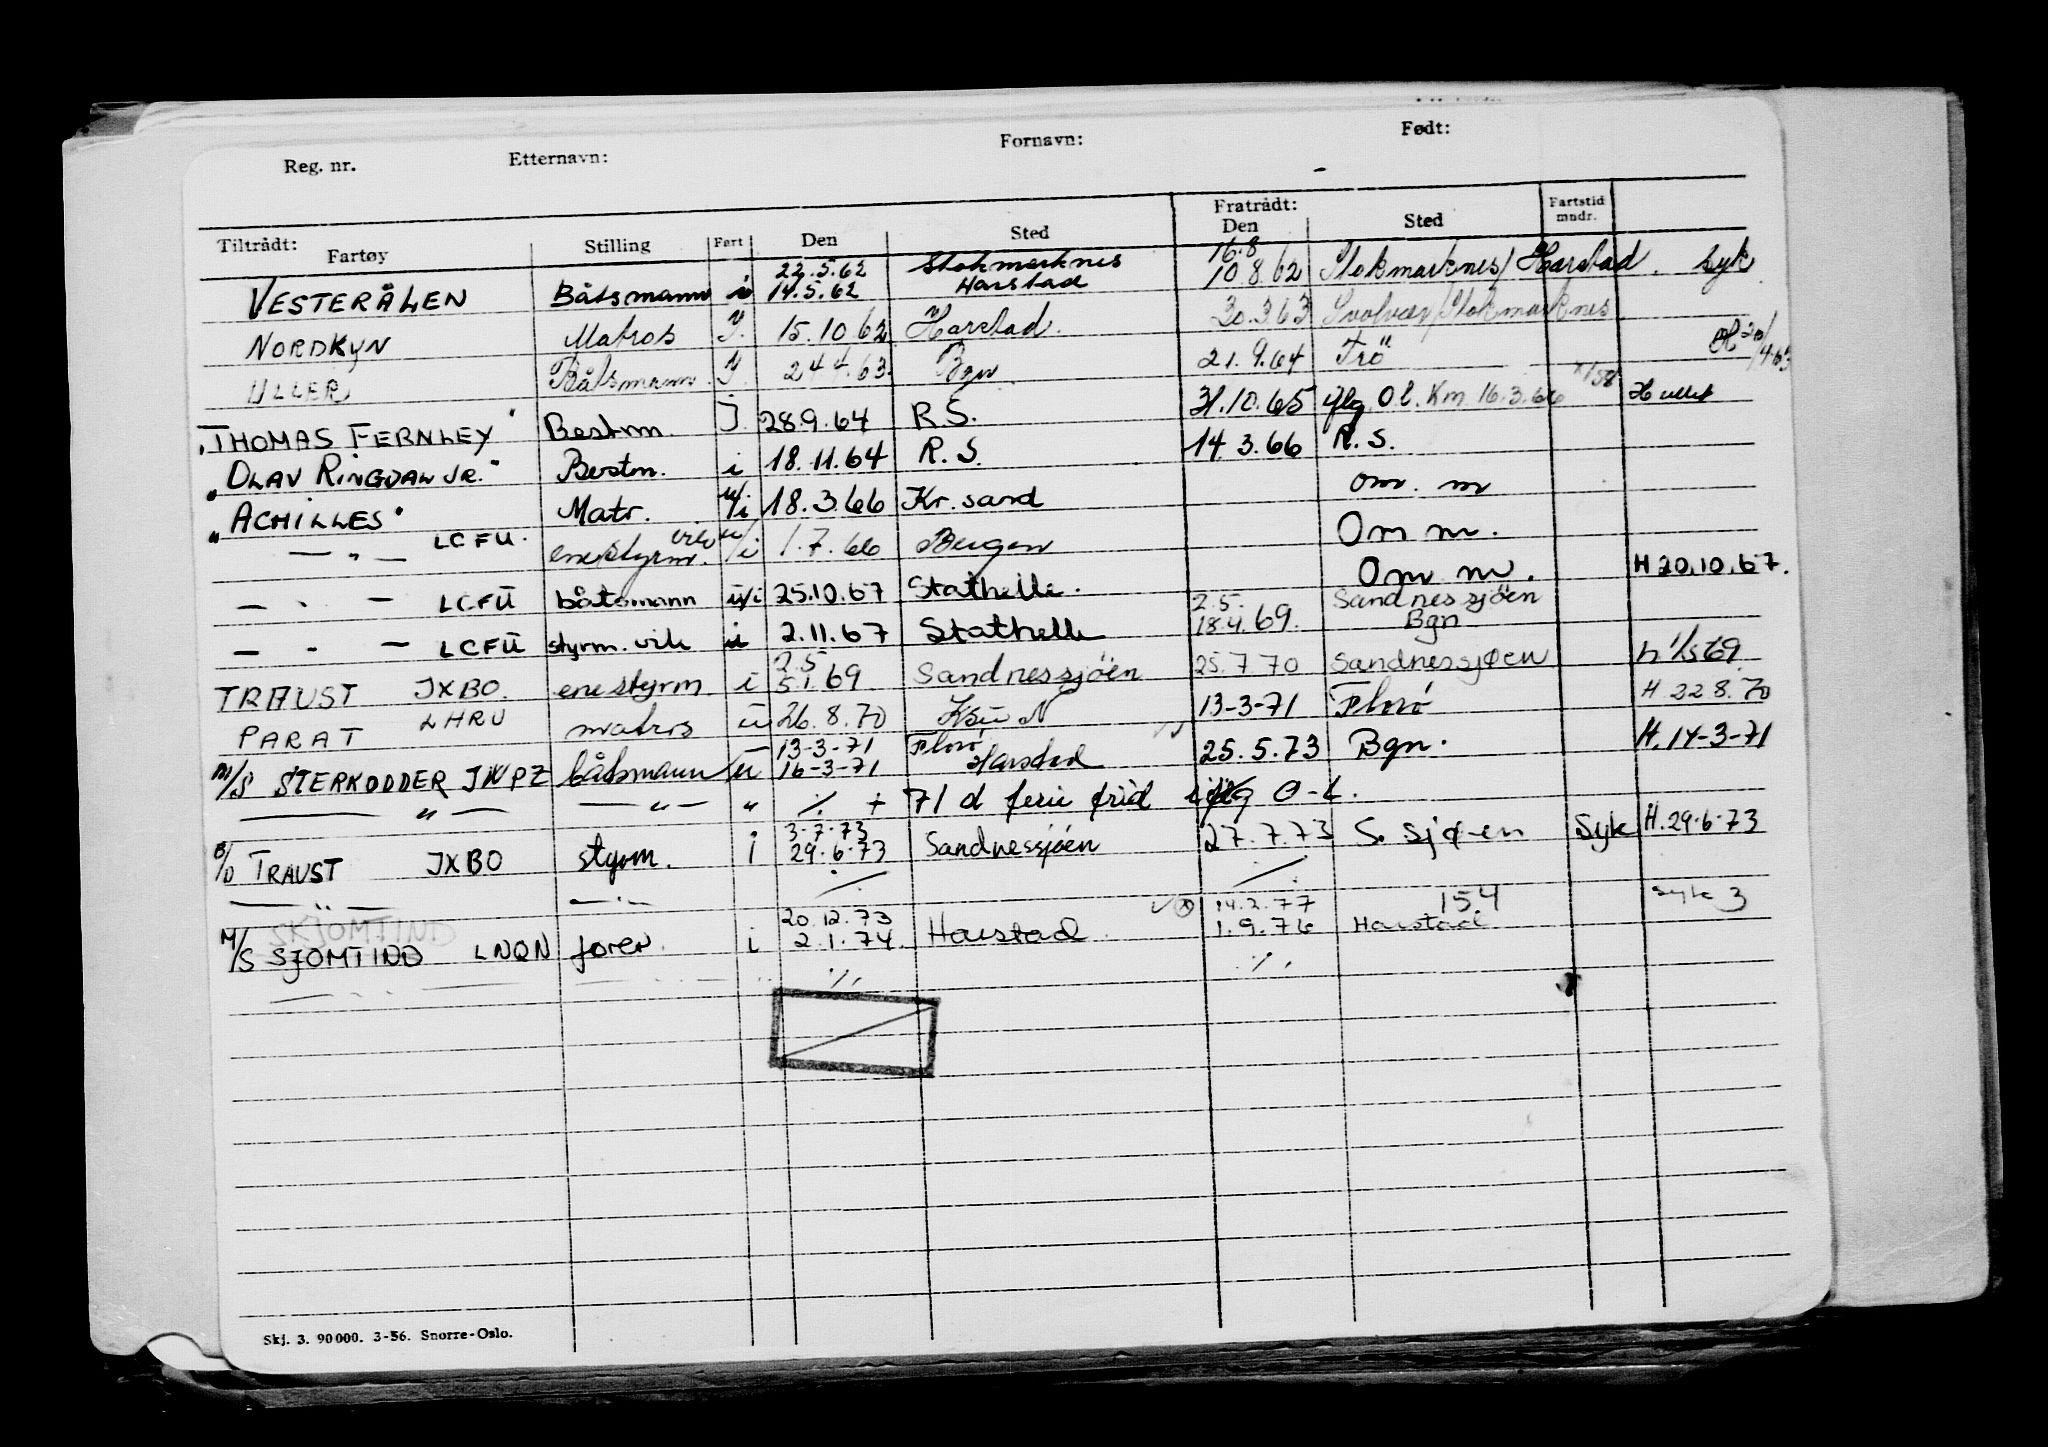 Reg. nr. Etternavn: Fornavn: Født:
Tiltrådt: Fratrådt: Fartstid
Fartøy Stilling Fart Den Sted Den Sted mndr.
22.5.62 Stokmarknes 16.8
VESTERÅLEN Båtsmann i 14.5.62 Harstad 10 8.62 Stokmarknes/Harstad. Syk
NORDKYN Matros 15.10 62 Harstad. 30.3 63 Svolvær/Stokmarknes
ULLER Båtsmann 24 4.63. Bgn 21.9.64 Trö H 20/4.63
"THOMAS FERNLEY" Bestm. J. 28.9.64 R.S. 31.10.65 iflg. O l. Km 16.3.66 Hullet
"OLAV RINGDAL JR." Bestm. i 18.11.64 R.S. 14.3.66 R.S.
"ACHILLES" Matr. u/i 18.3.66 Kr.sand om. m
— " — LCFU. enestyrm. vik u/i 1.7.66 Bergen Om m.
— " — LCFU båtsmann u/i 25.10.67 Stathelle. Om m. H 20.10.67.
2.5. Sandnessjöen
— " — LCFU styrm. vik 2.11.67 Stathelle 18.4.69. Bgn
2.5
TRAUST JXBO. enestyrm. i 5.1.69 Sandnessjöen 25.7.70 Sandnessjøen h 1/5 69.
PARAT LHRU matros u 26.8.70 13-3-71 Florö H 22 8.70
13-3-71 Florö
M/S STERKODDER JWPZ båtsmann u 16-3-71 Harstad 25.5.73 Bgn. H. 14-3-71
— " — — " — " ./. + 71 d ferie frid iflg O-L.
3-7-73
B/D TRAUST JXBO styrm. i 29.6.73 Sandnessjöen 27.7.73 S. sjøen Syk H.29.6.73
— " — — " — ./. ./.
SKJOMTIND 20.12.73 14.2.77 154 syk 3
M/S SJOMTIND LNQN fører. i 2.1.74. Harstad. 1.9.76 Harstad
./. ./.
Skj. 3. 90 000. 3-56. Snorre-Oslo.